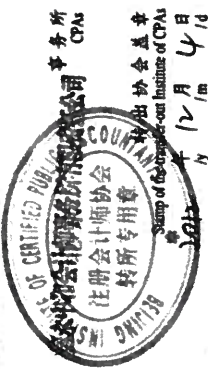 事务所
CPAs
转出协会盖章
Stamp of the transfer-out Institute of CPAs
2012年12月4日
/y /m /d
INSTITUTE OF CERTIFIED PUBLIC ACCOUNTANTS
BEIJING
注册会计师协会
转所专用章